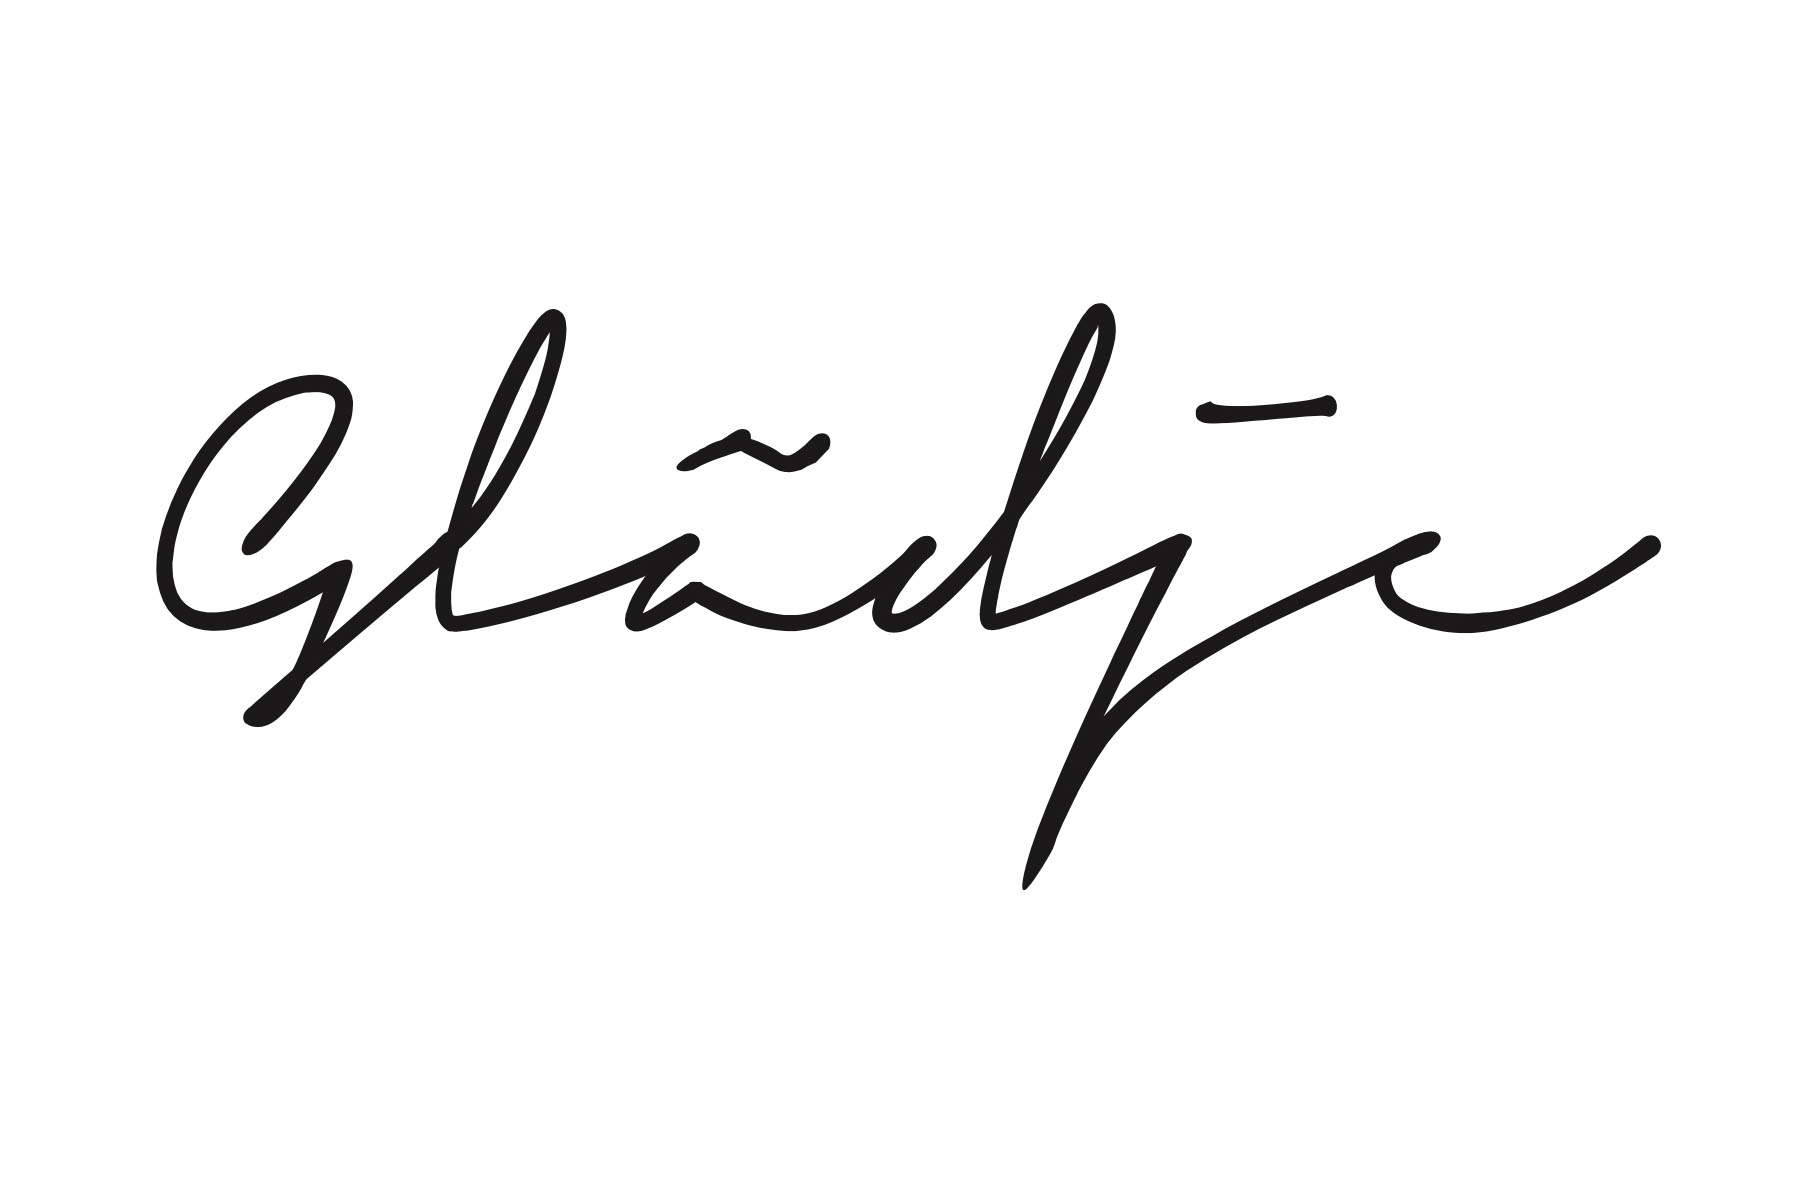 Glädje